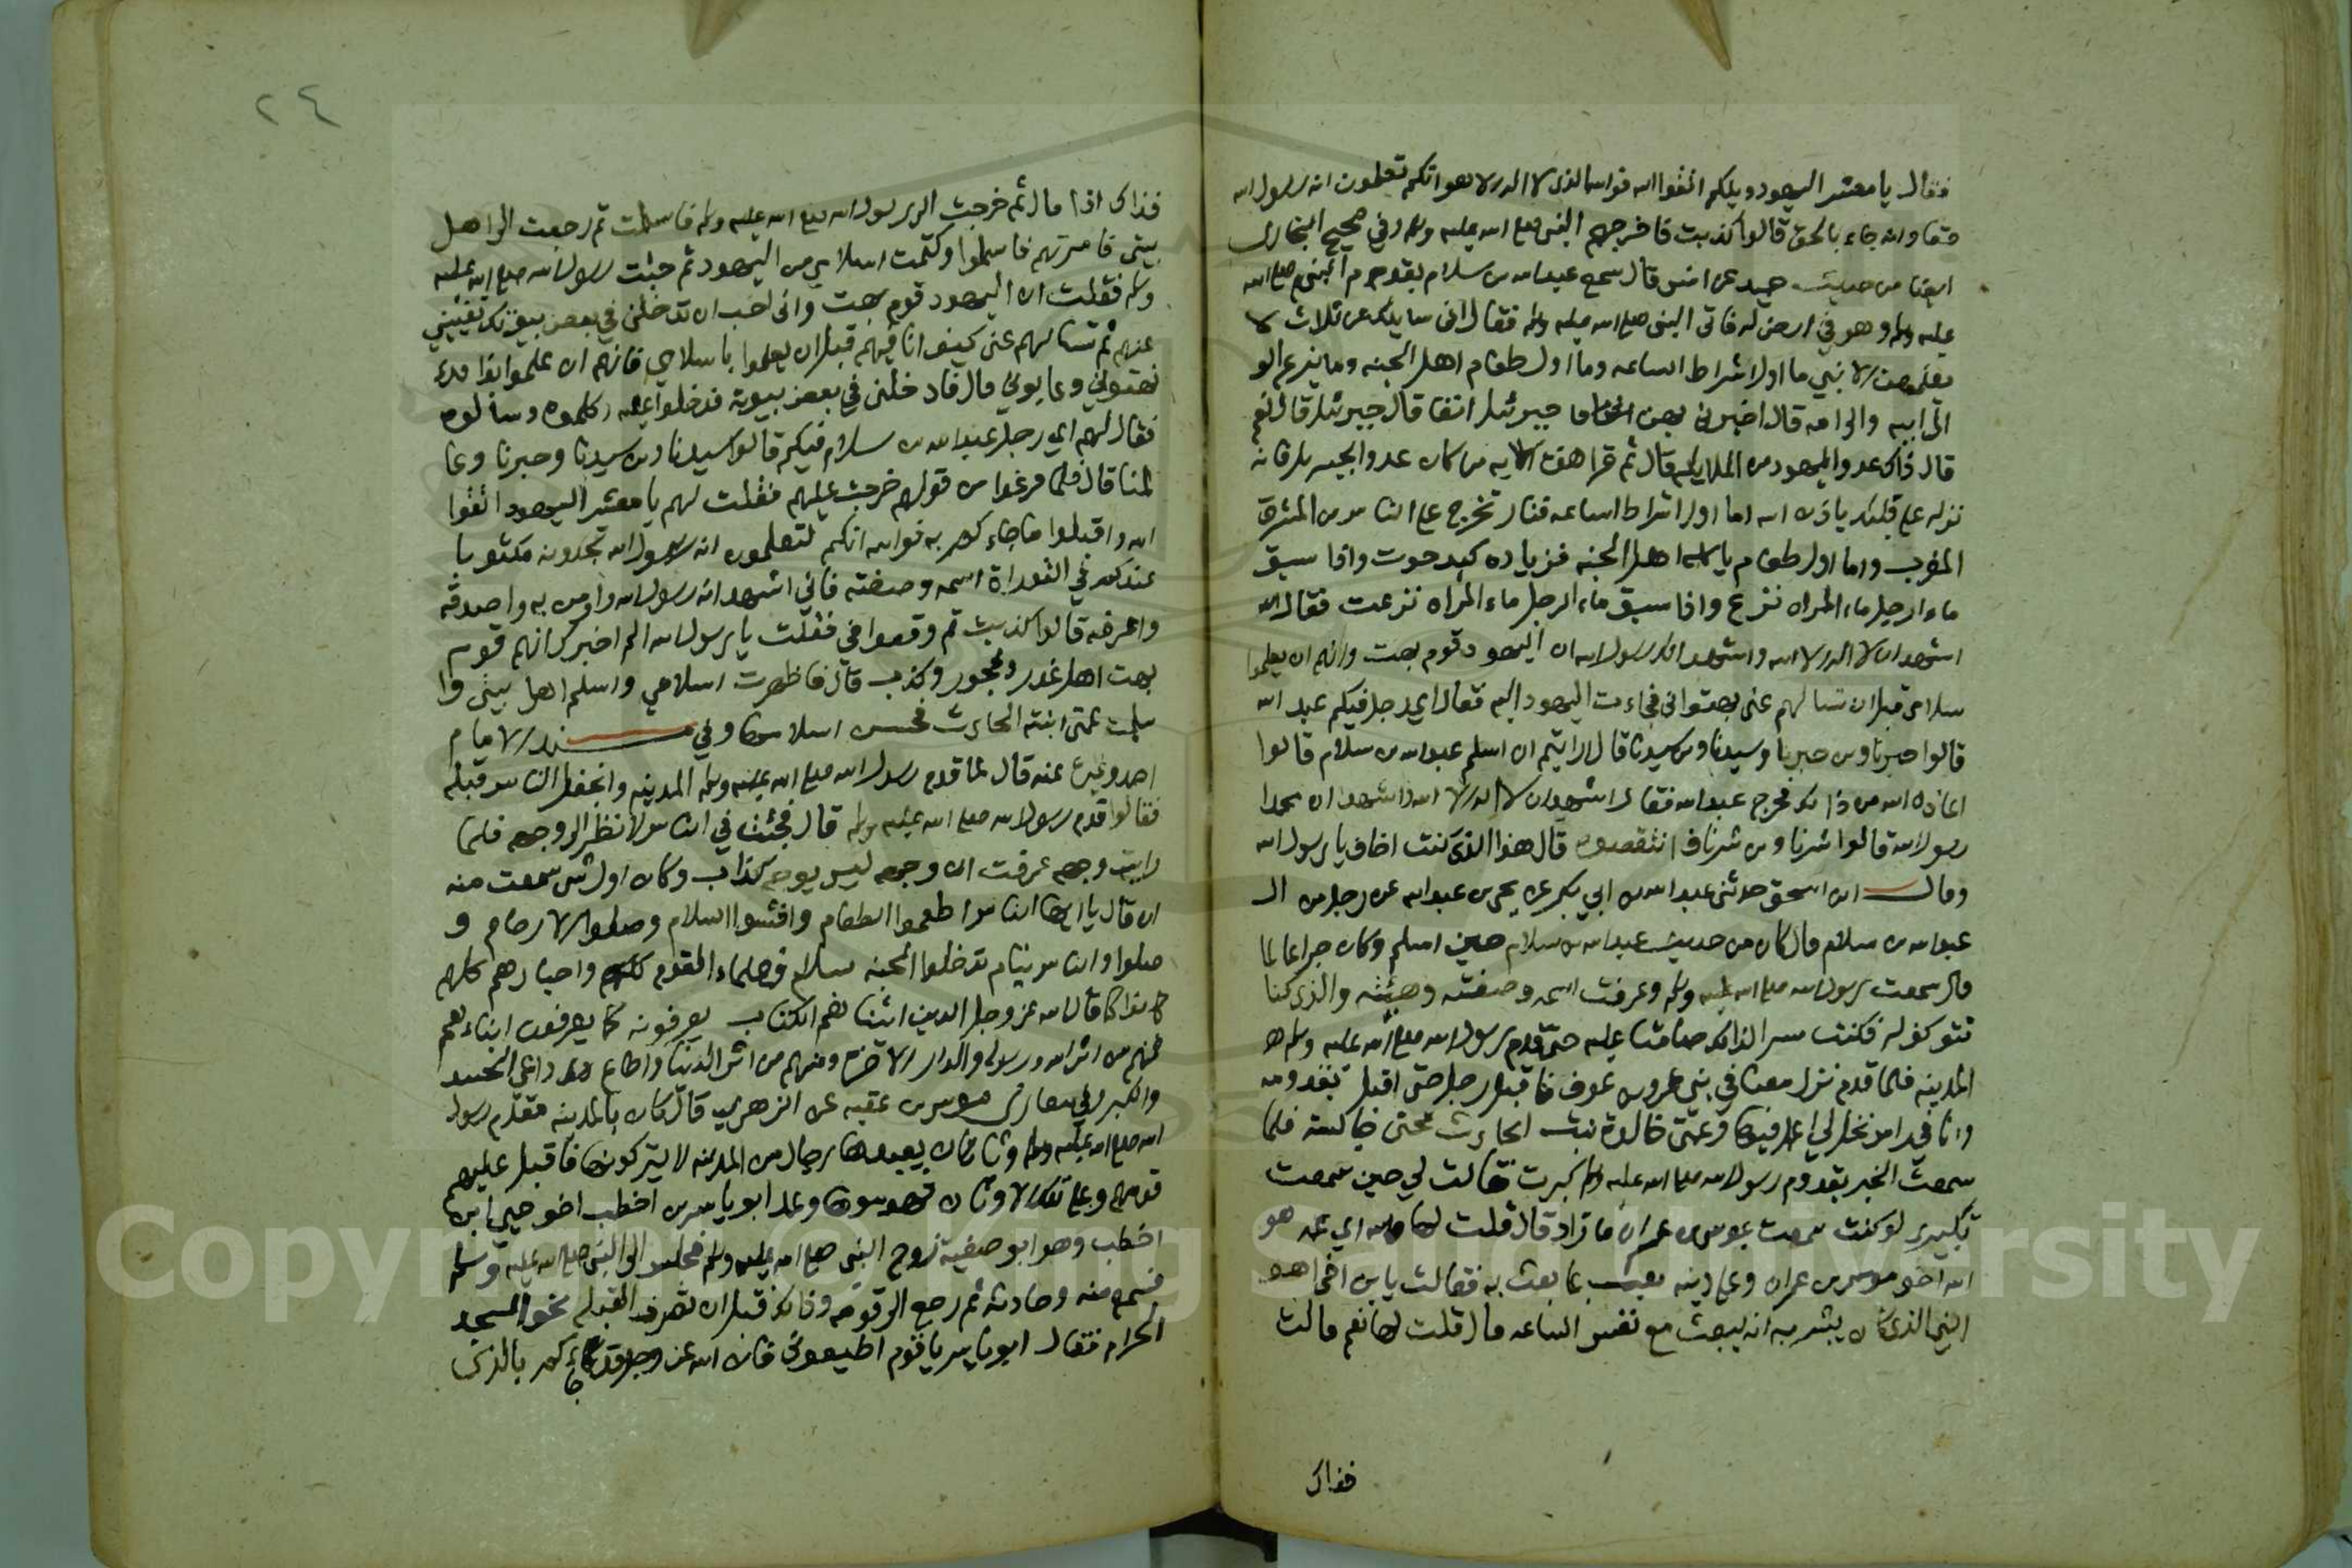 فقال يا معشر اليهود ويلكم اتقوا الله فوالله الذى لا اله الا هو انكم تعلمون انه رسول الله
حقا وانه جاء بالحق قالوا كذبت فاخرجهم النبي صلى الله عليه وسلم وفي صحيح البخارى
ايضا من حديث حميد عن انس قال سمع عبد الله بن سلام بقدوم النبي صلى الله
عليه وسلم وهو في ارض له فاتى النبي صلى الله عليه وسلم فقال انى سايلك عن ثلاث لا
يعلمهن الا نبي ما اول اشراط الساعه وما اول طعام اهل الجنه وما ينزع الولد
الى ابيه والى امه قال اخبرنى بهن انفا جبرئيل قال جبرئيل قال نعم
قال ذاك عدو اليهود من الملايكه قال ثم قرا هذه الايه من كان عدوا لجبريل فانه
نزله على قلبك باذن الله اما اول اشراط الساعه فنار تخرج على الناس من المشرق
المغرب واما اول طعام ياكله اهل الجنه فزيادة كبد حوت واذا سبق
ماء الرجل ماء المراه نزع واذا سبق ماء الرجل ماء المراه نزعت فقال
اشهد ان لا اله الا الله واشهد انك رسول الله ان اليهود قوم بهت وانهم ان يعلموا
سلامى قبل ان تسالهم عنى بهتوانى فجاءت اليهود اليه فقال اي رجل فيكم عبد الله
قالوا حبرنا وبن حبرنا وسيدنا وبن سيدنا قال ارايتم ان اسلم عبد الله بن سلام قالوا
اعاذه الله من ذالك فخرج عبد الله فقال اشهد ان لا اله الا الله واشهد ان محمدا
رسول الله قالوا شرنا وبن شرنا فانتقصوه قال هذا الذى كنت اخاف يا رسول الله
وقال ابن اسحق حدثنى عبد الله بن ابي بكر عن يحيى بن عبد الله عن رجل من ال
عبد الله بن سلام قال كان من حديث عبد الله بن سلام حين اسلم وكان حبرا عالما
قال سمعت برسول الله صلى الله عليه وسلم وعرفت اسمه وصفته وهيئته والذى كنا
نتوكف له فكنت مسرا لذالك صامتا عليه حتى قدم رسول الله صلى الله عليه وسلم
المدينه فلما قدم نزل معنا في بني عمرو بن عوف فاقبل رجل حتى اقبل بقدومه
وانا في راس نخل لي اعمل فيها وعمتى خالدة بنت الحارث تحتى جالسة فلما
سمعت الخبر بقدوم رسول الله صلى الله عليه وسلم كبرت فقالت لي حين سمعت
تكبيرى لو كنت سمعت بموسى بن عمران ما زاد قال قلت لها والله اي عمه هو
الله اخو موسى بن عمران وعلى دينه بعث بما بعث به فقالت يا بن اخي اهو
النبي الذى كان يبشر به انه يبعث مع نفس الساعه قال قلت لها نعم قالت
فذاك
٢٤
فذاك اذا قال ثم خرجت الى رسول الله صلى الله عليه وسلم فاسلمت ثم رجعت الى اهل
بيتى فامرتهم فاسلموا وكتمت اسلامي من اليهود ثم جئت رسول الله صلى الله عليه
وسلم فقلت ان اليهود قوم بهت وانى احب ان تدخلنى في بعض بيوتك تغيبني
عنهم ثم تسالهم عنى كيف انا فيهم قبل ان يعلموا باسلامي فانهم ان علموا بذلك
بهتوني وعابوني قال فادخلنى في بعض بيوته فدخلوا عليه وكلموه وسالوه
فقال لهم اي رجل عبد الله بن سلام فيكم قالوا سيدنا وبن سيدنا وحبرنا وعا
لمنا قال فلما فرغوا من قولهم خرجت عليهم فقلت لهم يا معشر اليهود اتقوا
الله واقبلوا ما جاءكم به فوالله انكم لتعلمون انه رسول الله تجدونه مكتوبا
عندكم في التوراة اسمه وصفته فاني اشهد انه رسول الله واومن به واصدقه
واعرفه قالوا كذبت ثم وقعوا في فقلت يا رسول الله الم اخبرك انهم قوم
بهت اهل غدر وفجور وكذب قال فاظهرت اسلامي واسلم اهل بيتى وا
سلمت عمتى ابنة الحارث فحسن اسلامها وفي مسند الامام
احمد وغيره عنه قال لما قدم رسول الله صلى الله عليه وسلم المدينه وانجفل الناس قبله
فقالوا قدم رسول الله صلى الله عليه وسلم قال فجئت في الناس لانظر الى وجهه فلما
رايت وجهه عرفت ان وجهه ليس بوجه كذاب وكان اول شي سمعت منه
ان قال يا ايها الناس اطعموا الطعام وافشوا السلام وصلوا الارحام و
صلوا والناس نيام تدخلوا الجنه بسلام فعلماء القوم واحبارهم كلهم
كانوا كما قال الله عز وجل الذين اتيناهم الكتاب يعرفونه كما يعرفون ابناءهم
فمنهم من اثر الله ورسوله والدار الاخرة ومنهم من اثر الدنيا واطاع داعي الحسد
والكبر وفي مغازى موسى بن عقبه عن الزهري قال كان بالمدينه مقدم رسول
الله صلى الله عليه وسلم وثان يعبدها رجال من المدينه لا يتركونها فاقبل عليهم
قومهم وعلى تلك الاوثان فهدموها وعمد ابو ياسر بن اخطب اخو حيي ابن
اخطب وهو ابو صفية زوج النبي صلى الله عليه وسلم فجلس الى النبي صلى الله عليه وسلم
فسمع منه وحادثه ثم رجع الى قومه وذلك قبل ان تصرف القبله نحو المسجد
الحرام فقال ابو ياسر يا قوم اطيعونى فان الله عز وجل قد جاءكم بالذى